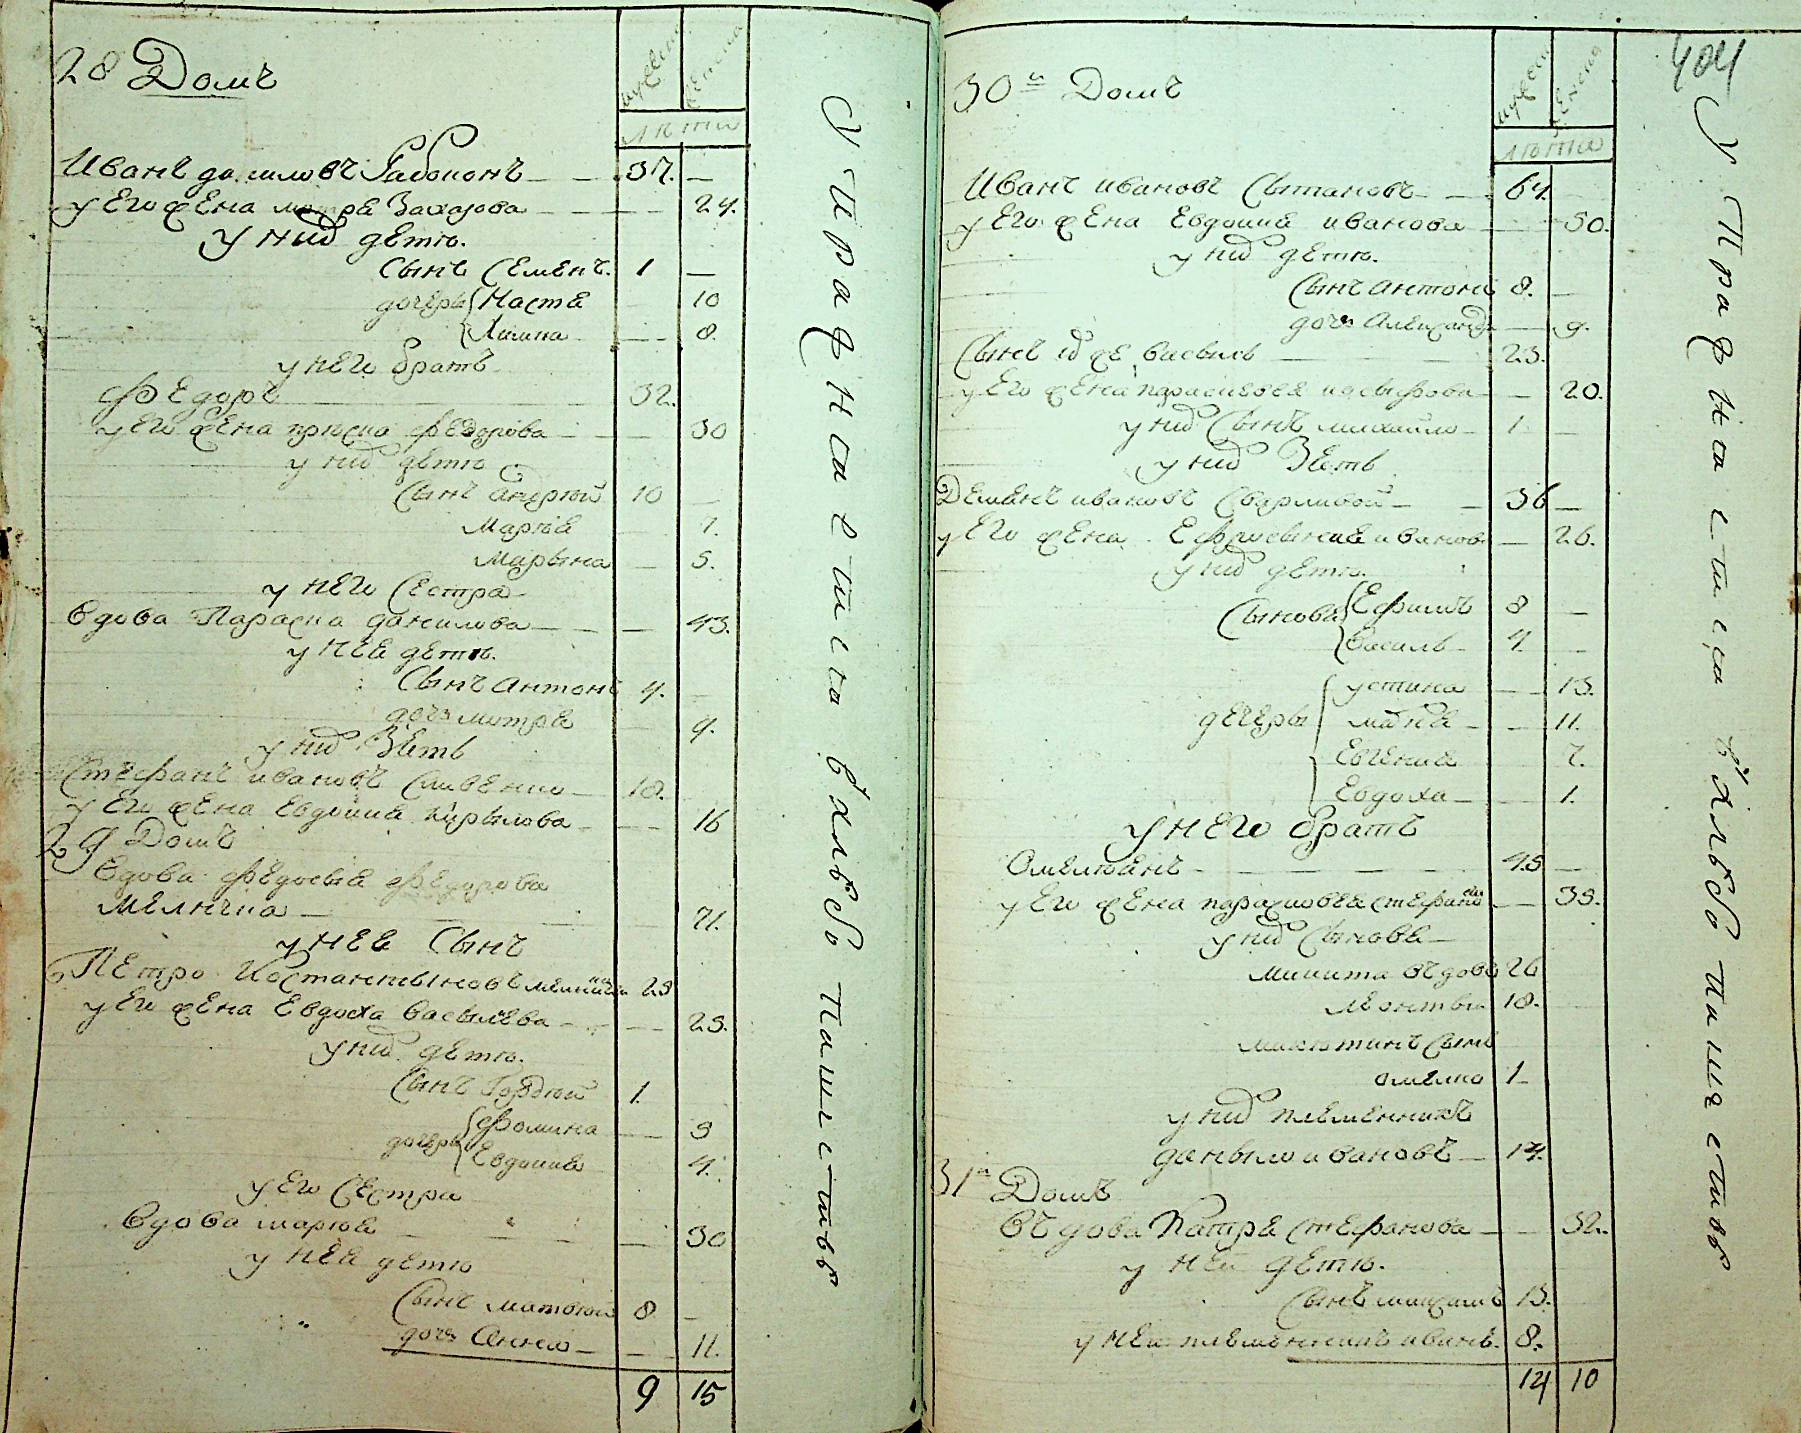 28 Домъ
мужеска
женска
лѣта
Иванъ даниловъ 37. —
у его жена мотря Захарова — 24.
у них дети.
сынъ Семенъ. 1 —
дочеры Настя 10
Химка 8.
у него братъ
Федоръ 32.
у его жена прыска федорова 30
у них дети
Сынъ андрюй 10 —
Марія 7.
Марына 5.
у него Сестра
вдова Параска данилова — 43.
у нея дети.
Сынъ антонъ 4.
дочъ мотря — 9.
у них Зять
Стефанъ ивановъ Сливенко 18.
у его жена Евдокия Кирылова — 16
29 Домъ
вдова федосия федорова
Мелничка — 71.
у нея Сынъ
Петро Костантыновъ 25
у его жена Евдоха васылева — 25.
у них дети.
Сынъ Гордюй 1.
дочеры Фомина — 3
Евдокия 4.
у его Сестра
вдова марюя — 30
у нея дети
Сынъ матвюй 8 —
дочъ Анна — 11.
9 15
Упражняется в хлѣбопашествѣ
404
30й Домъ
мужеска
женска
лѣта
Иванъ ивановъ Сытановъ 64.
у его жена Евдокия иванова — 50.
у них дети.
Сынъ антонъ 8. —
дочъ Александра — 9.
Сынъ васыль 23.
у его жена парасковея — 20.
у них Сынъ михайло 1 —
у них Зять
Демянъ ивановъ Сварливой — 36 —
у его жена Ефросыния иванова — 26.
у них дети.
Сынове Ефимъ 8 —
Васыль 4 —
дечеры устина — 13.
— 11.
Евгения 7.
Евдоха — 1.
у него братъ
Омелюянъ — 45 —
у его жена парасковея стефанова — 35.
у них Сынове
микита въдовъ 26
леонтый 18.
микитинъ сынъ
омелко 1
у них племенникъ
даныло ивановъ 14.
31й Домъ
въдова Катря Стефанова — 32.
у ней дети.
Сынъ 13.
у ней племянникъ иванъ. 8.
14 10
Упражняется в хлѣбопашествѣ